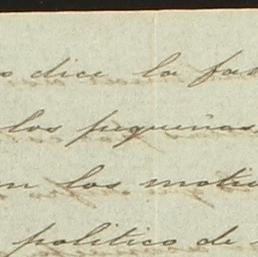 dice la
los pequeñas
los
politico de